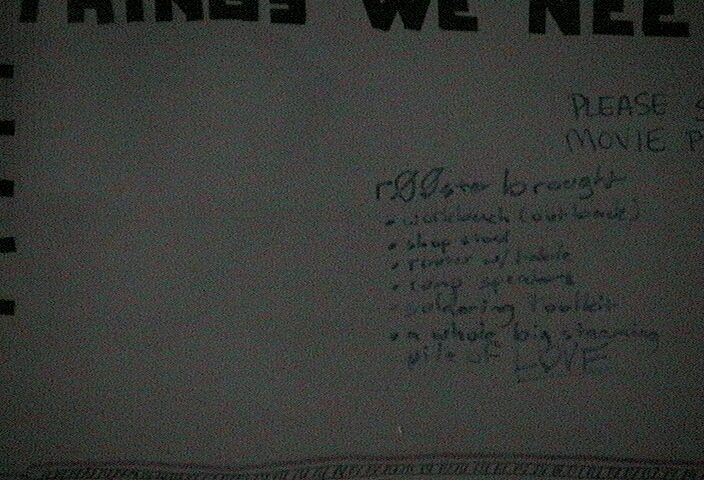 THINGS WE NEE
PLEASE S
MOVIE P
rØØster brought
• workbench (out back)
• shop stool
• router w/ table
• comp speakers
• soldering toolkit
• a whole big steaming
pile of LOVE